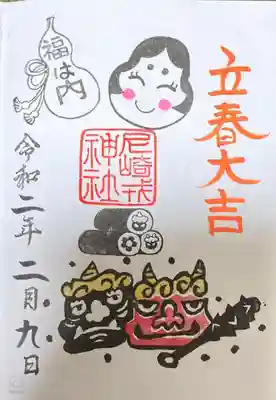 立春大吉
福は内
尼崎戎
神社
令和二年二月九日